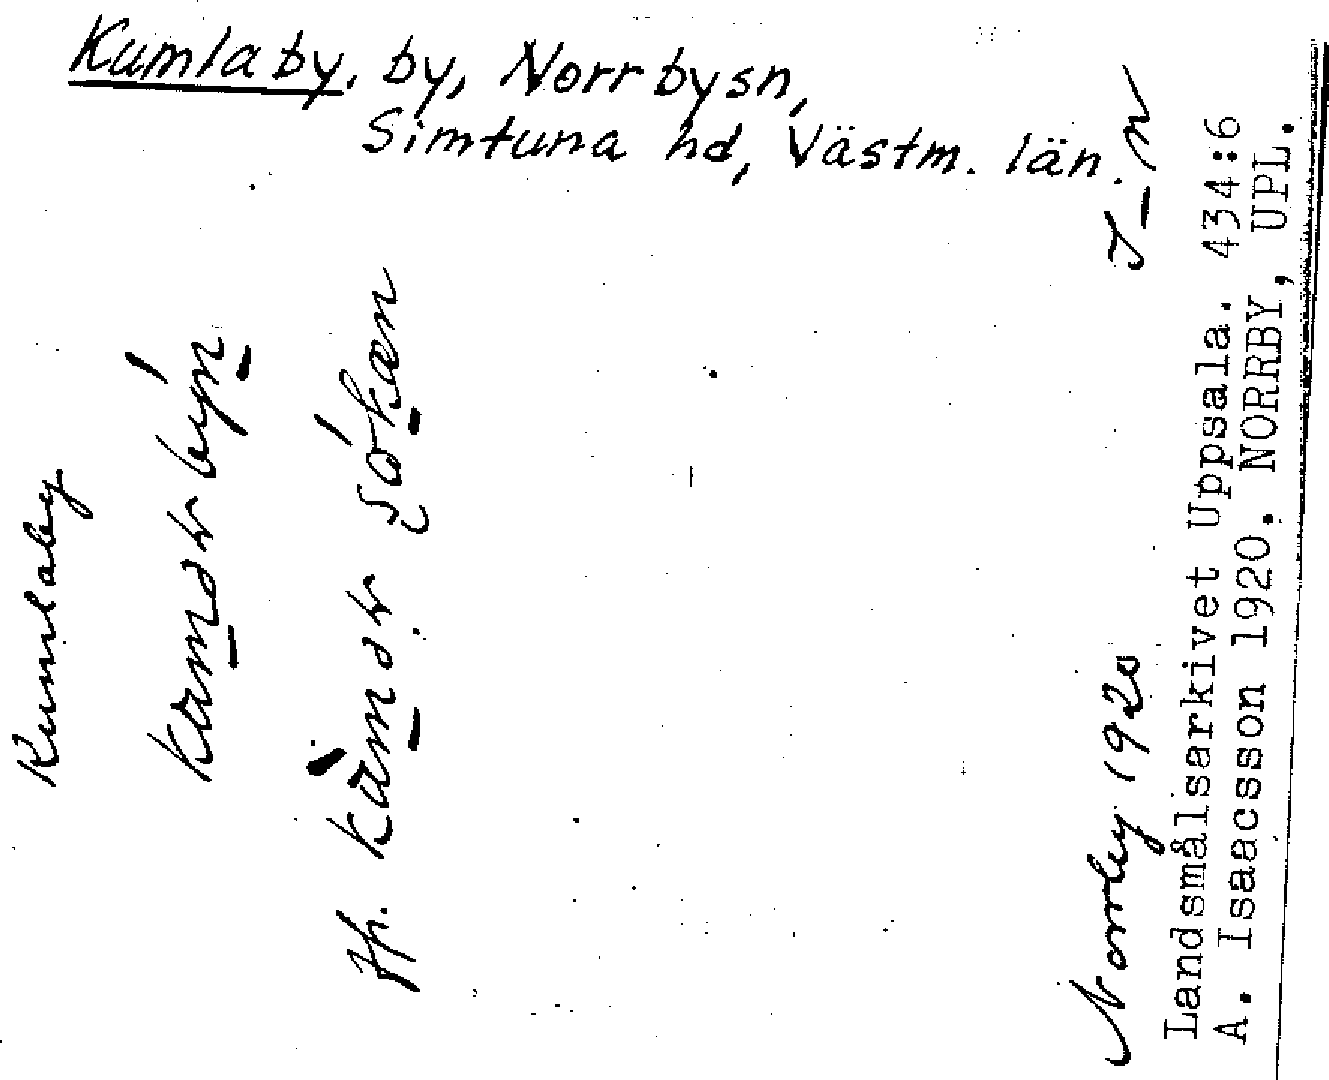 Kumlaby, by, Norrbysn,
Simtuna hd, Västm. län.
Kumlaby
Hp.
Norrby 1920
I-n
Landsmålsarkivet Uppsala. 434:6
A. Isaacsson 1920. NORRBY, UPL.